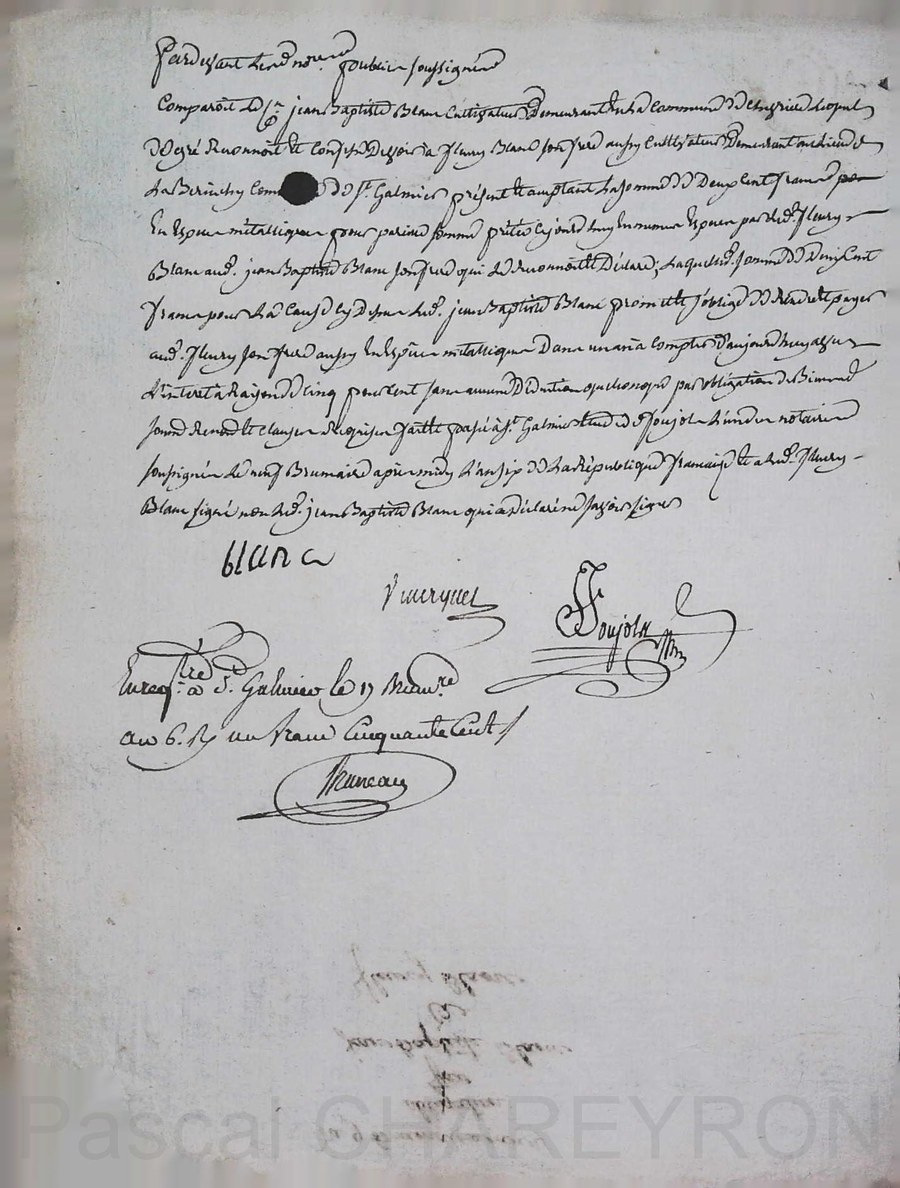 Pardevant le no.re public soussigné
Comparoit le c.en jean Baptiste Blanc Cultivateur Demeurant en la commune de lequel
De gré Reconnoit et Confesse Devoir a fleury Blanc son frere aussy Cultivateur Demeurant au lieu de
La de S.t Galmier présent et acceptant La somme de Deux Cent francs
En Espece métallique pour pareille somme prêtée ce jourd'huy En meme Espece par led. fleury
Blanc aud. jean Baptiste Blanc son frere qui le Reconnoit et Déclare; Laquelle somme de Deux Cent
francs pour La Cause Cy Dessus led. jean Baptiste Blanc promet et s'oblige de Rendre et payer
aud. fleury son frere aussy En Espece métallique Dans un an a Compter D'aujourd'huy avec
L'interet a Raison de Cinq pour Cent sans aucune quelconque par obligation de Biens
soumis Renonce et clauses Requises fait et passé à S.t Galmier Etude de Soujols L'un des notaires
soussigné Le neuf Brumaire après midy L'an six de La République française et a led. fleury
Blanc signé non led. jean Baptiste Blanc qui a Déclaré ne savoir signer
blanc
Soujols
Enreg.tré à S.t Galmier le 17 Brum.re
an 6. R un franc Cinquante Cent
fleury Blanc
jean Baptiste Blanc
Pascal CHAREYRON